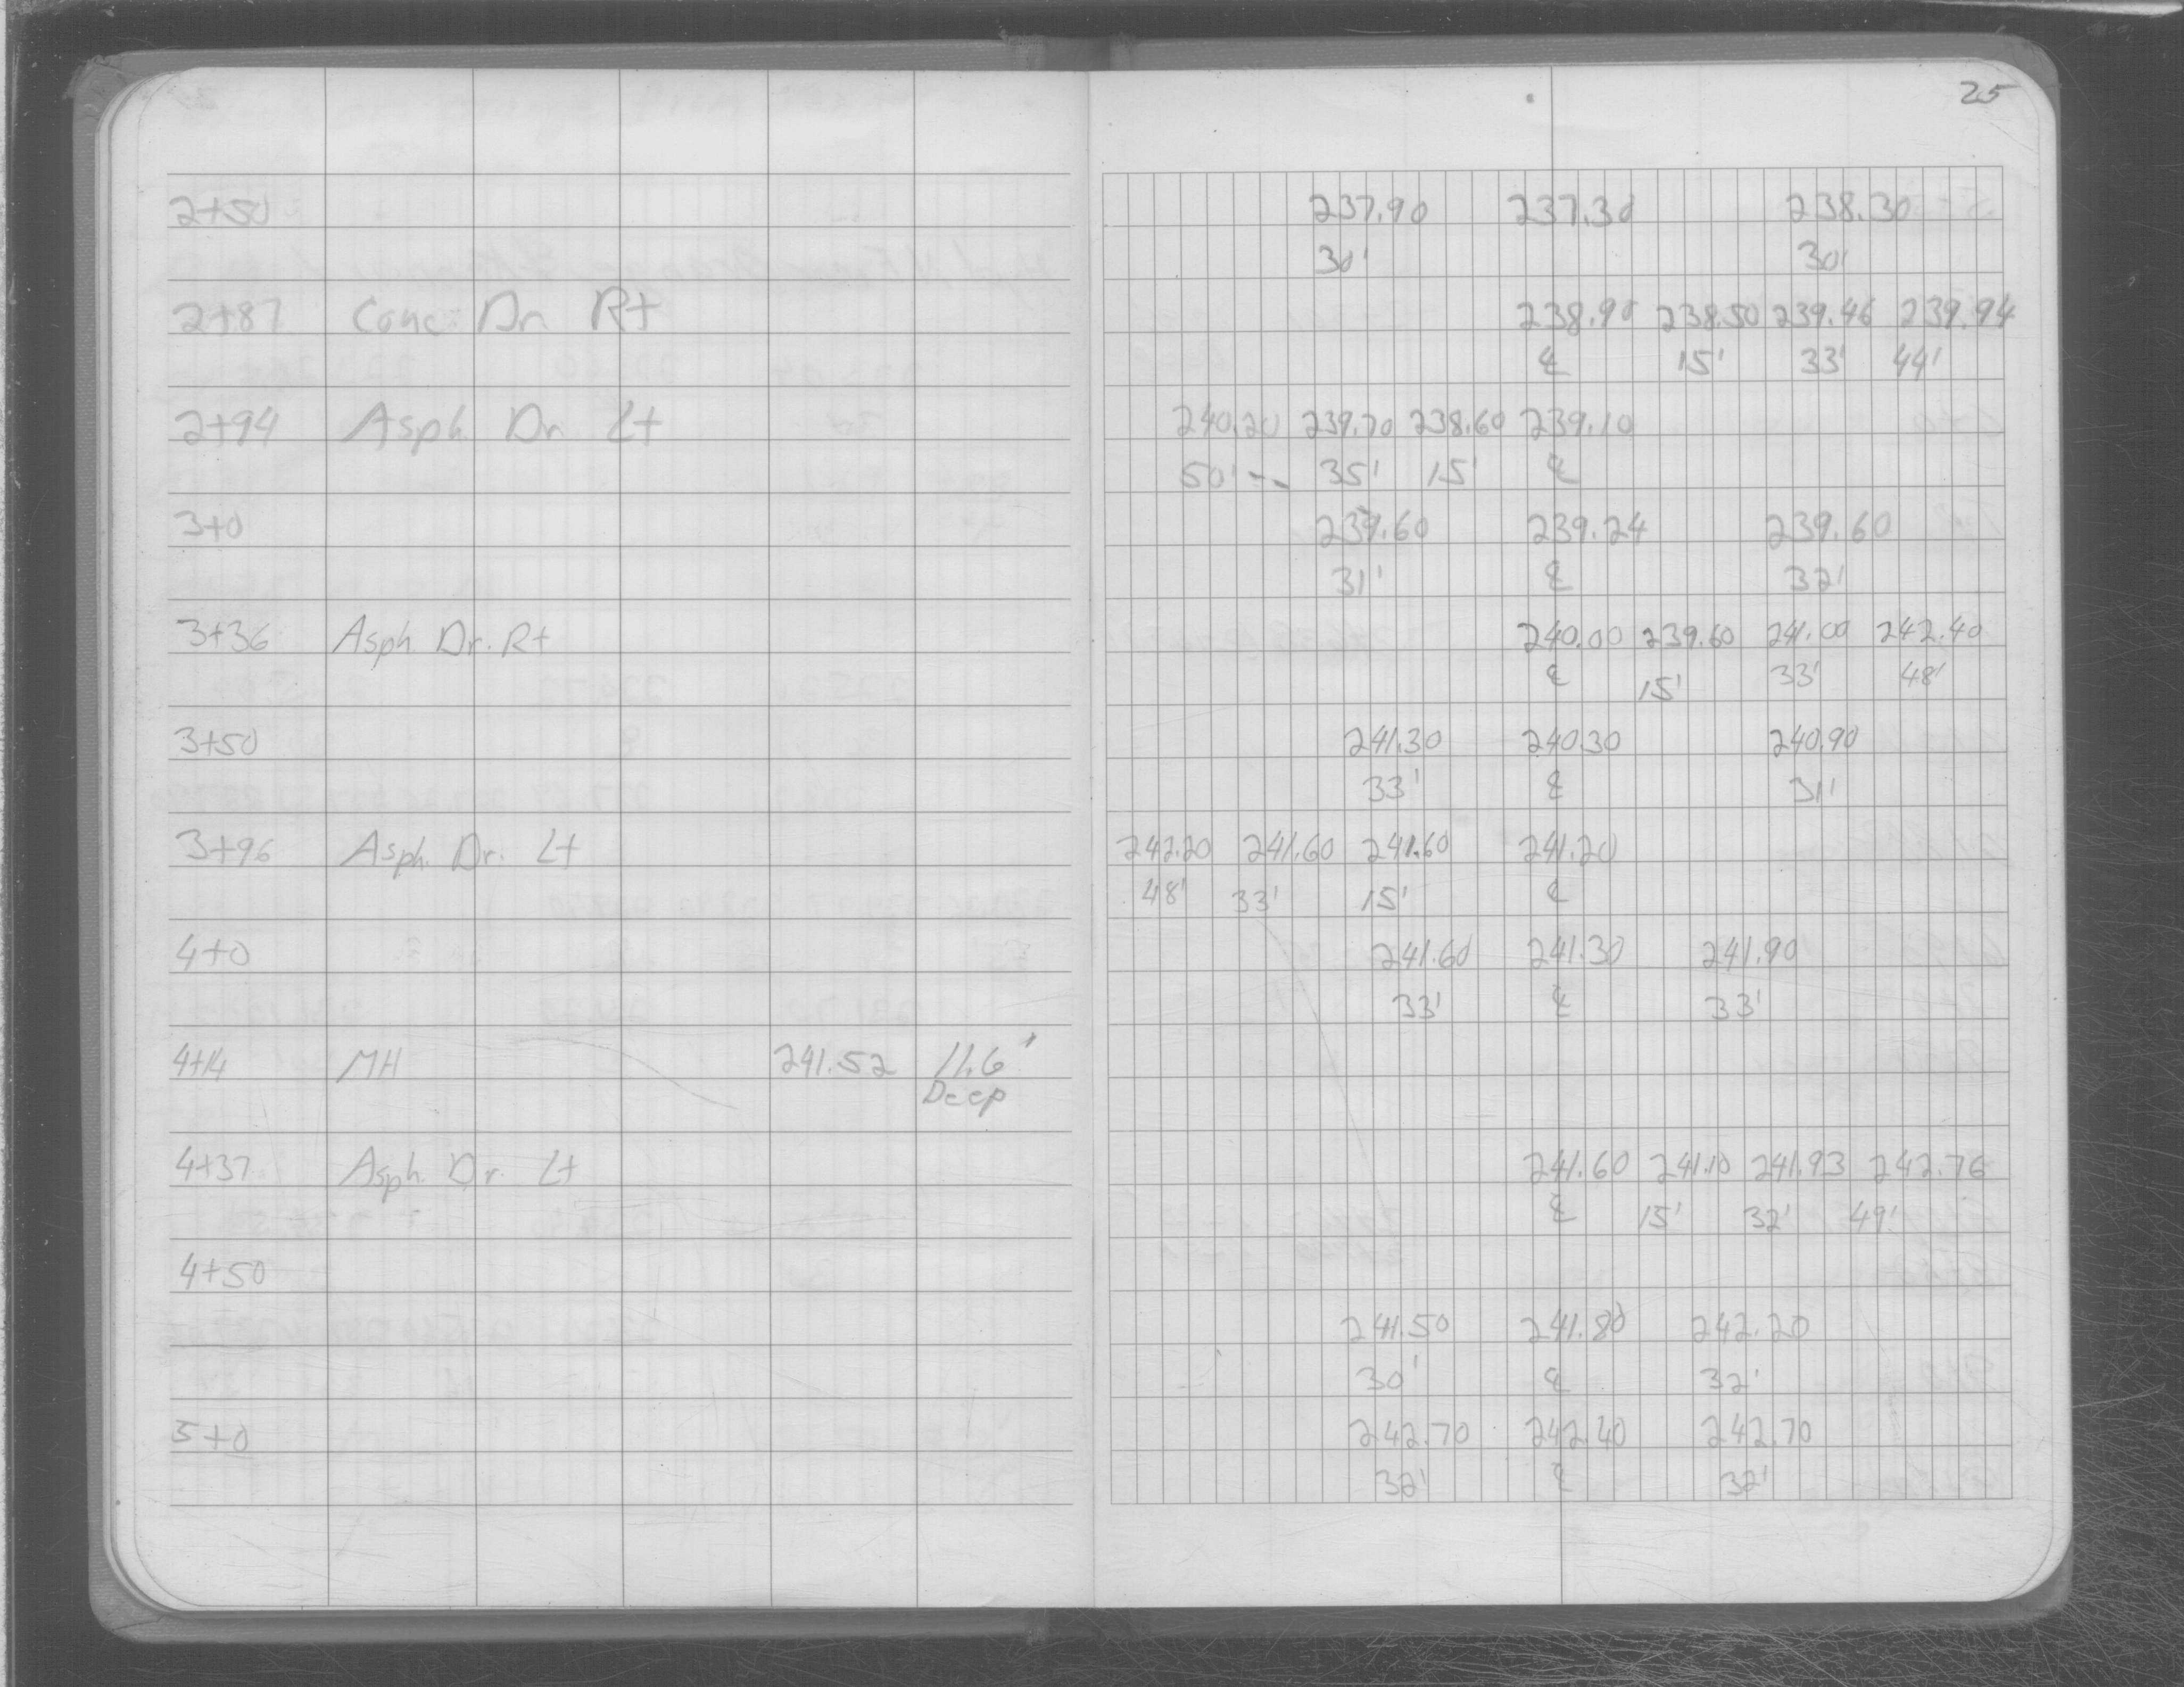 25
2+50 237.90 237.30 238.30
30' 30'
2+87 Conc. Dr Rt 238.90 238.50 239.46 239.94
℄ 15' 33' 44'
2+94 Asph. Dr Lt 240.20 239.70 238.60 239.10
50' -- 35' 15' ℄
3+0 239.60 239.24 239.60
31' ℄ 32'
3+36 Asph Dr. Rt 240.00 239.60 241.00 242.40
℄ 15' 33' 48'
3+50 241.30 240.30 240.90
33' ℄ 31'
3+96 Asph. Dr. Lt 242.20 241.60 241.60 241.20
48' 33' 15' ℄
4+0 241.60 241.30 241.90
33' ℄ 33'
4+14 MH 241.52 11.6'
Deep
4+37 Asph. Dr. Lt 241.60 241.10 241.93 242.76
℄ 15' 32' 49'
4+50
241.50 241.80 242.20
30' ℄ 32'
5+0 242.70 242.40 242.70
32' ℄ 32'